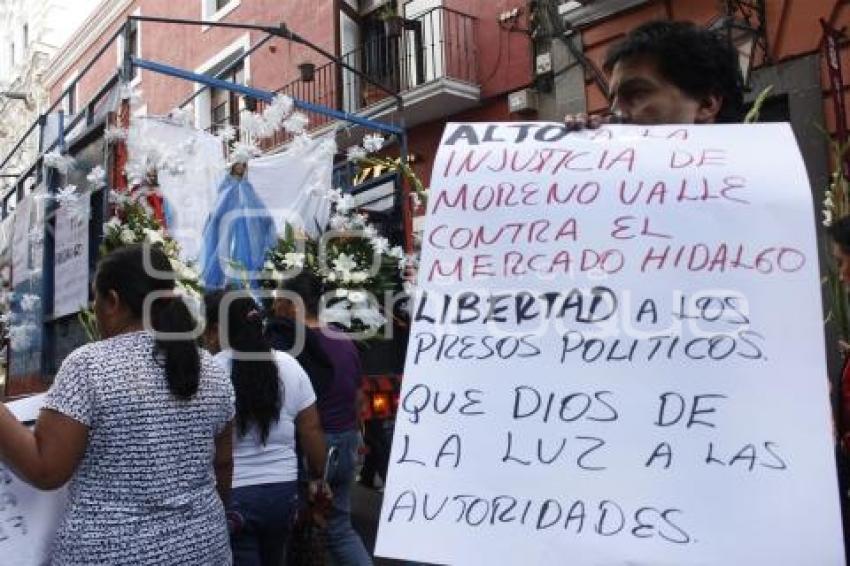 ALTO A LA
INJUSTICIA DE
MORENO VALLE
CONTRA EL
MERCADO HIDALGO
LIBERTAD A LOS
PRESOS POLITICOS.
QUE DIOS DE
LA LUZ A LAS
AUTORIDADES.
enfoque